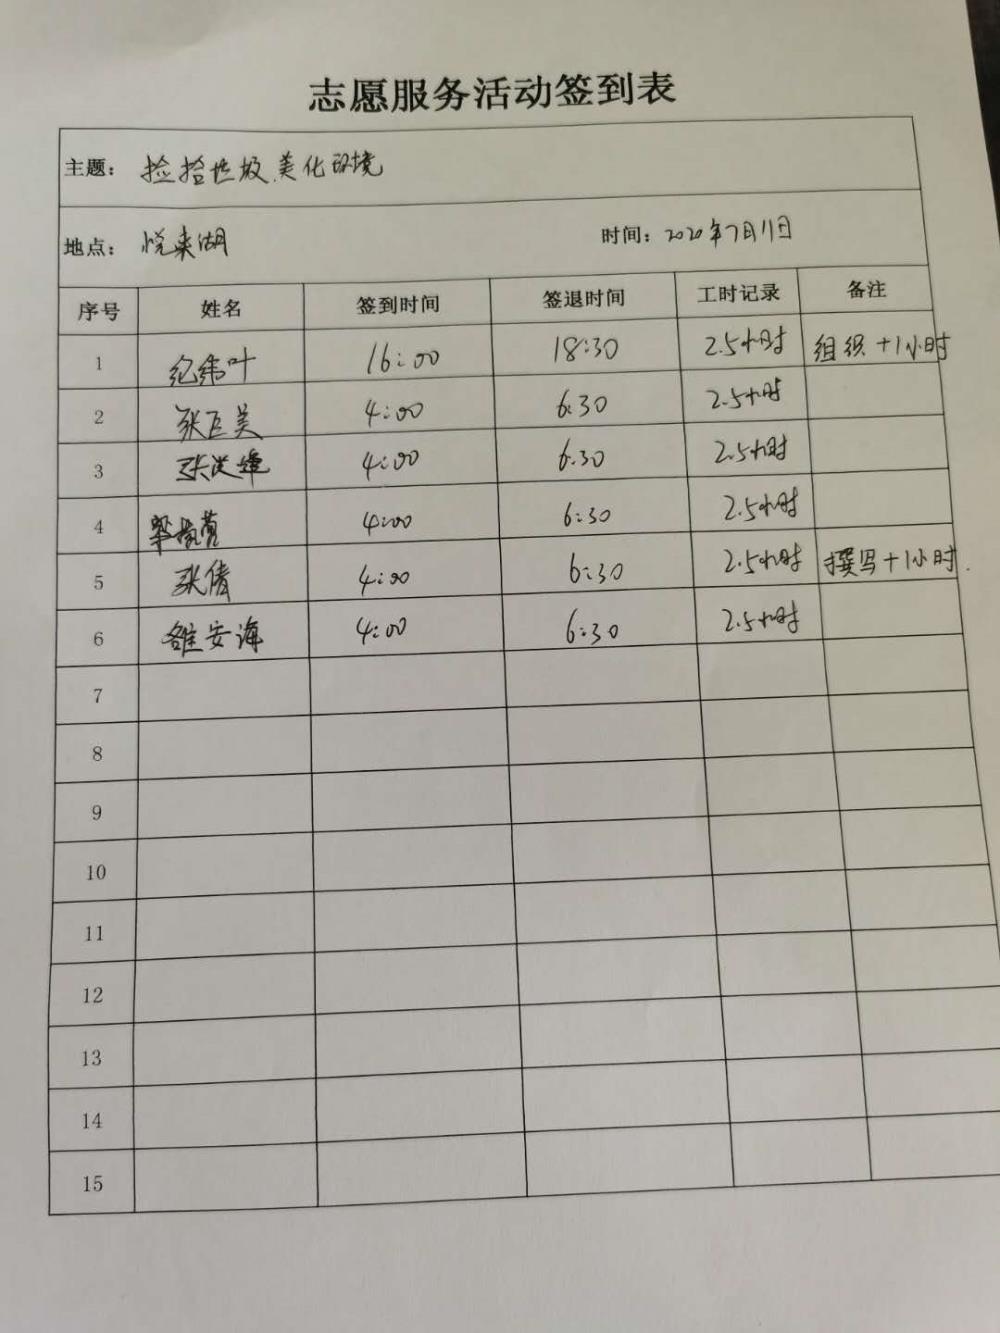 志愿服务活动签到表
主题： 捡拾垃圾.美化环境
地点： 悦来湖 时间：2020年7月11日
序号 姓名 签到时间 签退时间 工时记录 备注
1 纪纬叶 16:00 18:30 2.5小时 组织+1小时
2 张巨美 4:00 6:30 2.5小时
3 张 4:00 6:30 2.5小时
4 4:00 6:30 2.5小时
5 张倩 4:00 6:30 2.5小时 撰写+1小时.
6 安海 4:00 6:30 2.5小时
7
8
9
10
11
12
13
14
15